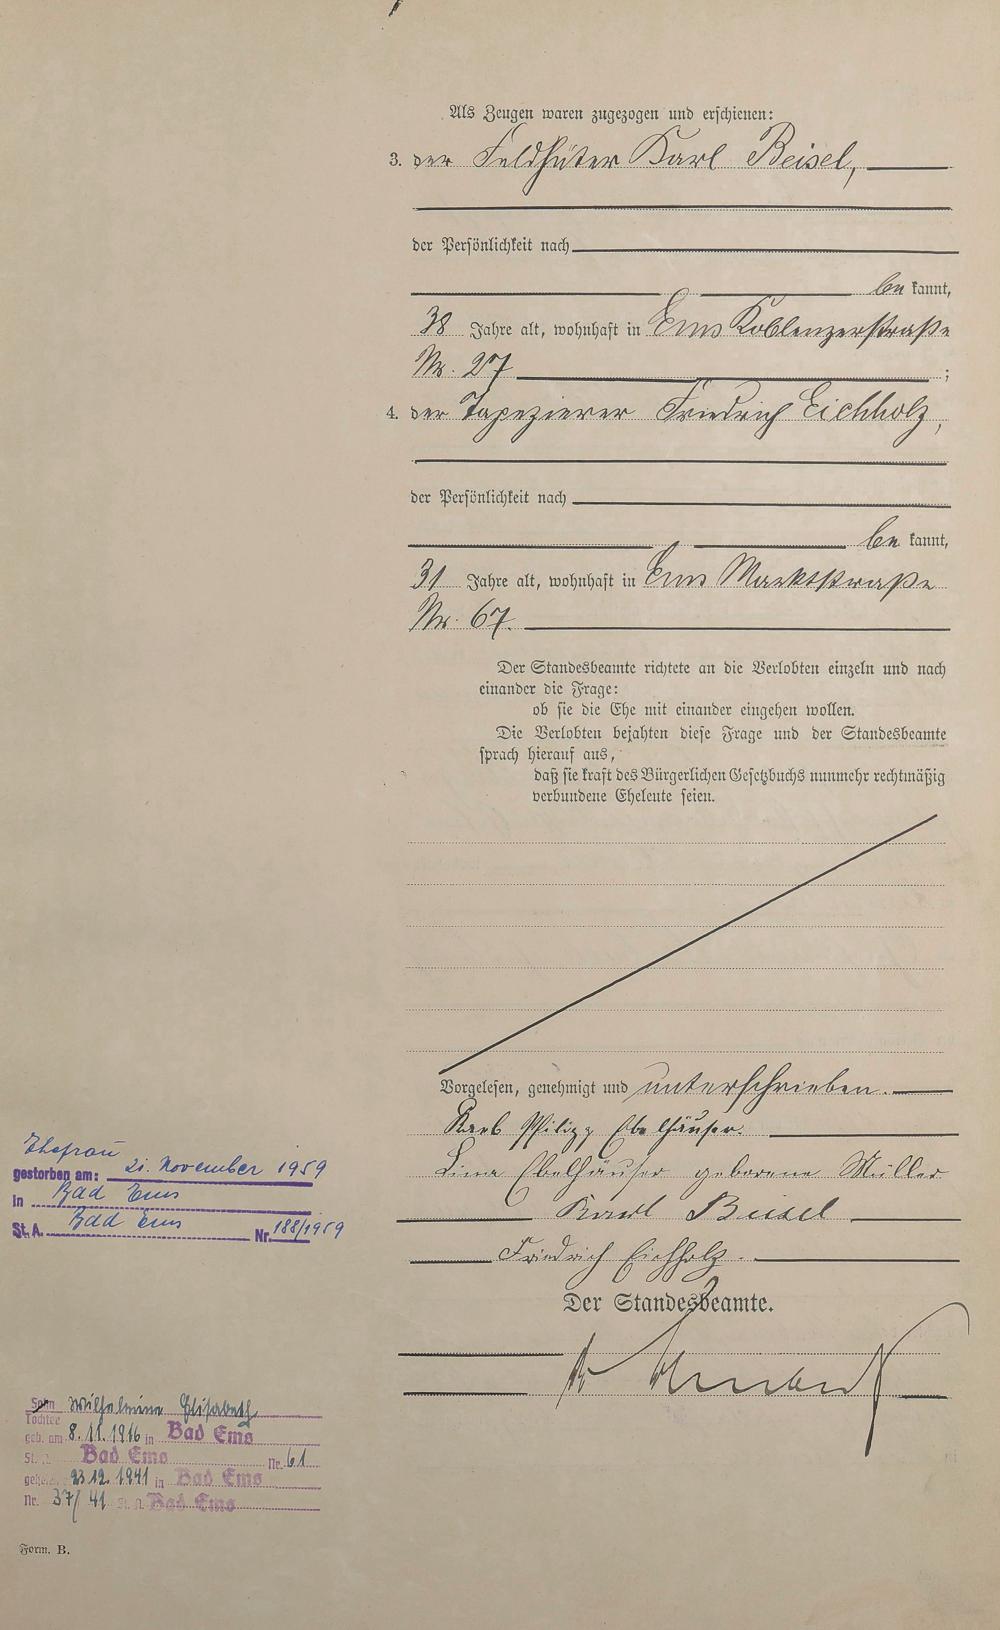 Als Zeugen waren zugezogen und erschienen:
3. der Feldhüter Karl Beisel,
der Persönlichkeit nach
be kannt,
38 Jahre alt, wohnhaft in Ems Koblenzerstraße
Nr. 27 ;
4. der Tapezierer Friedrich Eichholz,
der Persönlichkeit nach
be kannt,
31 Jahre alt, wohnhaft in Ems Marktstraße
Nr. 67.
Der Standesbeamte richtete an die Verlobten einzeln und nach
einander die Frage:
ob sie die Ehe mit einander eingehen wollen.
Die Verlobten bejahten diese Frage und der Standesbeamte
sprach hierauf aus,
daß sie kraft des Bürgerlichen Gesetzbuchs nunmehr rechtmäßig
verbundene Eheleute seien.
Vorgelesen, genehmigt und unterschrieben.
Karl Philipp Ebelhäuser.
Lina Ebelhäuser geborene Müller
Karl Beisel
Friedrich Eichholz.
Der Standesbeamte.
Ehefrau
gestorben am: 21. November 1959
in Bad Ems
St. A. Bad Ems Nr. 188/1959
Sohn Wilhelmine Elisabeth
Tochter
geb. am 8.11.1916 in Bad Ems
St. A. Bad Ems Nr. 61
geheir. 23.12.1941 in Bad Ems
Nr. 37/41 St. A. Bad Ems
Form. B.